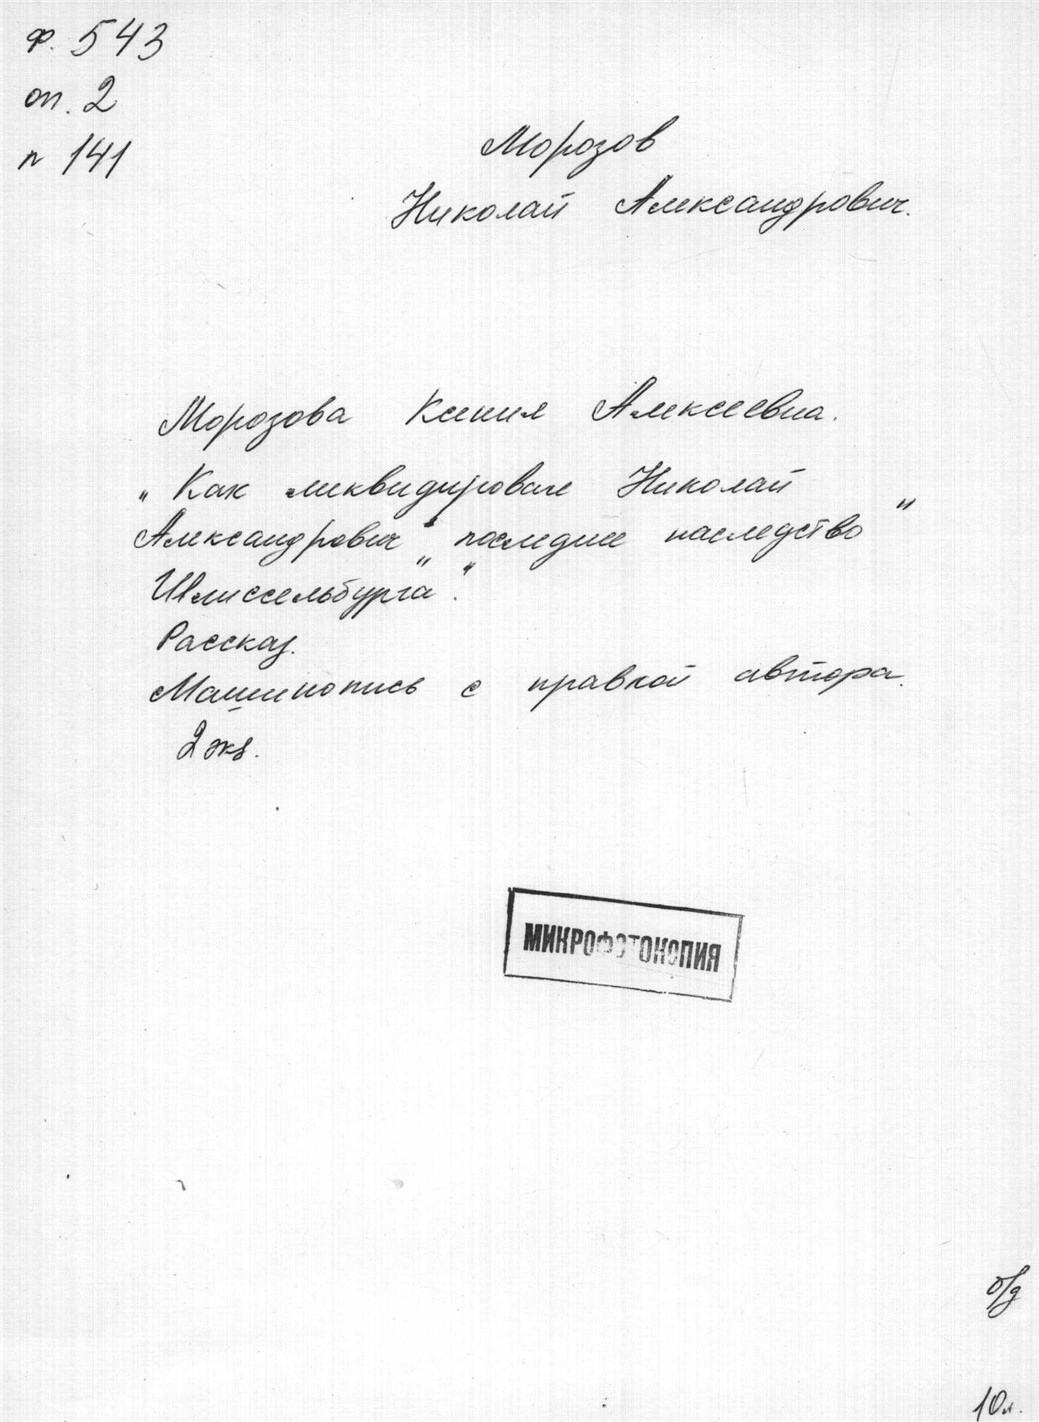 ф. 543
оп. 2
n 141
Морозов
Николай Александрович.
Морозова Ксения Алексеевна.
„Как ликвидировал Николай
Александрович „последнее наследство"
Шлиссельбурга".
Рассказ.
Машинопись с правкой автора.
2 экз.
МИКРОФОТОКОПИЯ
б/д
10 л.